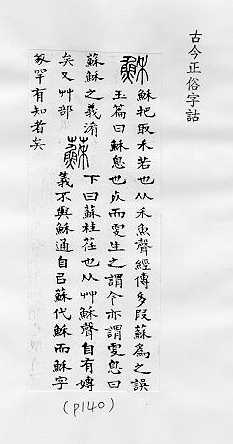 古今正俗字詁
穌
穌杷取禾若也从禾魚聲經傳多叚蘇為之誤
玉篇曰穌息也死而更生之謂今亦謂更息曰
蘇穌之義淆
矣又艸部
蘇
下曰蘇桂荏也从艸穌聲自有嫥
義不與穌通自㠯蘇代穌而穌字
㒸罕有知者矣
(p140)